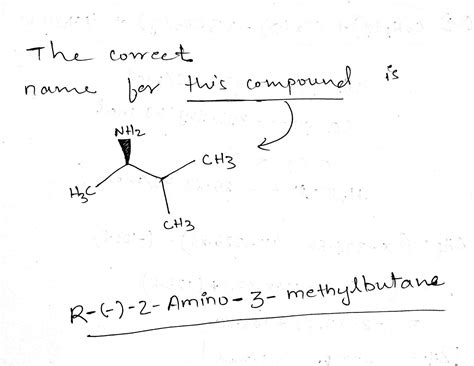 The correct
name for this compound is
NH2
CH3
H3C
CH3
R-(-)-2-Amino-3-methylbutane